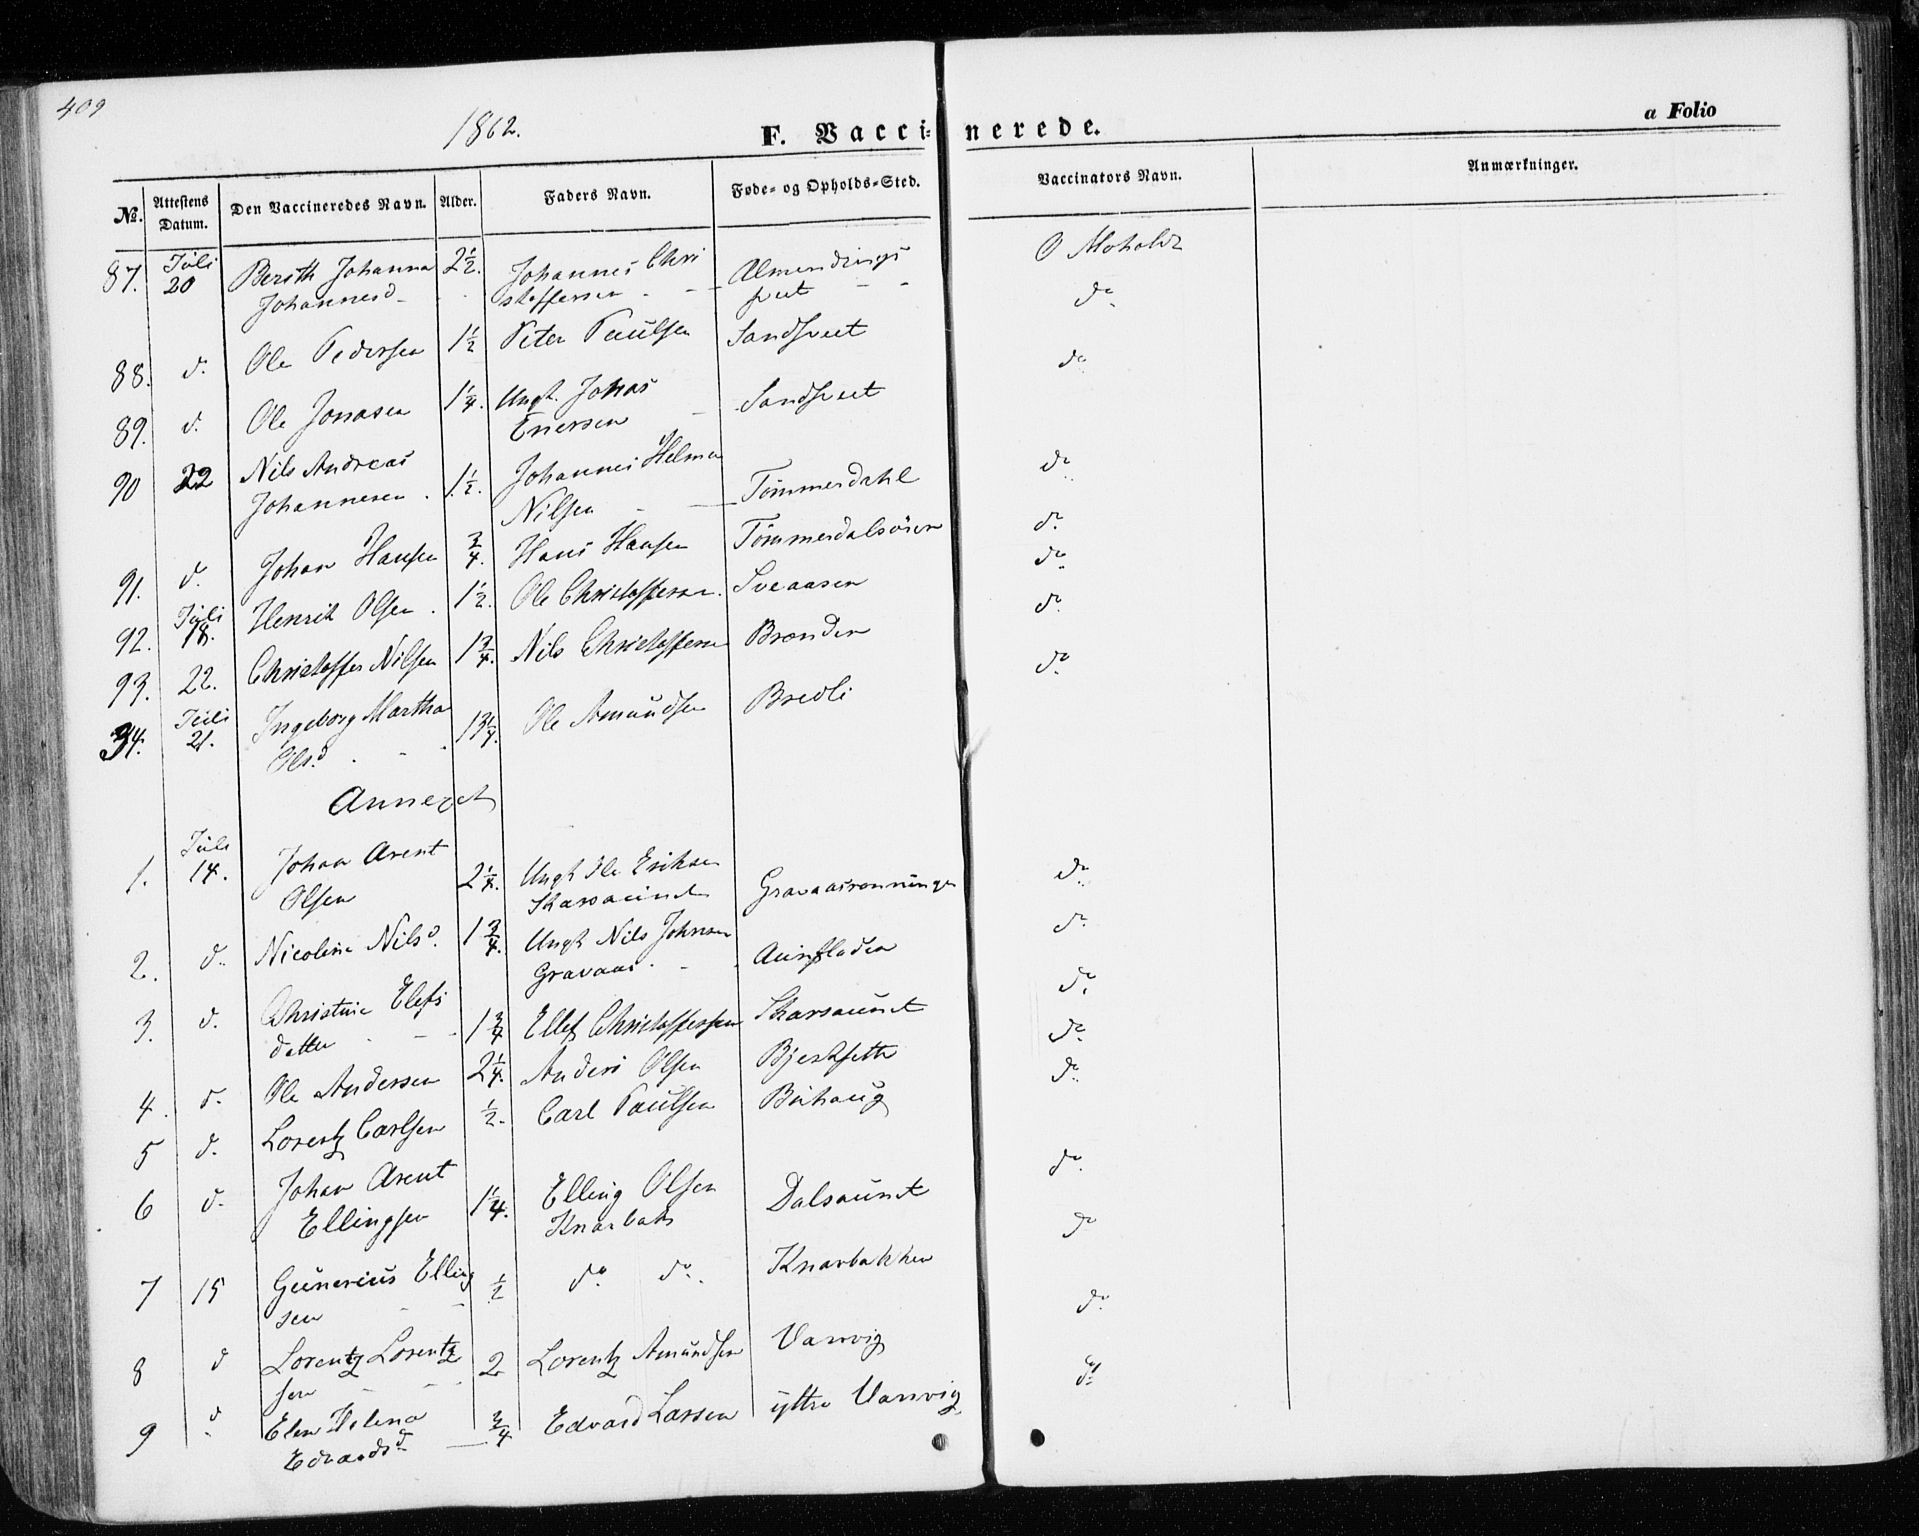 409
1862.
F. Vaccinerede.
a Folio
No. Attestens Datum. Den Vaccineredes Navn. Alder. Faders Navn. Føde- og Opholds-Sted. Vaccinators Navn. Anmærkninger.
87. Juli 20 Berith Johanna Johannesd. 2 1/2. Johannes Christoffersen Almendingsveet O Moholdt
88. d. Ole Pedersen 1 1/2 Peter Paulsen Sandsveet do
89. d. Ole Jonasen 1 1/4. Ungk. Johas Enersen Sandsveet do
90 22 Nils Andreas Johannesen 1 1/2. Johannes Helmer Nilsen Tömmerdahl do
91. d. Johan Hansen 3/4. Hans Hansen Tömmerdalsöien do
92. Juli 18. Henrik Olsen 1 1/2. Ole Christoffersen. Sveaasen do
93. 22. Christoffer Nilsen 1 3/4. Nils Christoffersen Brænden do
94. Juli 21. Ingeborg Martha Olsd. 13 1/4. Ole Amundsen Bredli do
Annexet
1. Juli 14. Johan Arent Olsen 2 1/4. Ungk Ole Eriksen Skarsaunet Gravaasrønningen do
2. d. Nicoline Nilsd. 1 3/4. Ungk Nils Johnsen Gravaas. do
3. d. Christine Elefsdatter 1 3/4 Ellef Christoffersen Skarsaunet do
4. d. Ole Andersen 2 1/4. Anders Olsen do
5 d. Lorentz Carlsen 1/2. Carl Paulsen Buhaug do
6 d. Johan Arent Ellingsen 1 1/4. Elling Olsen Knarbak Dalsaunet do
7 15 Gunerius Ellingsen 1/2 do do. Knarbakken do
8 d Lorentz Lorentzsen 2 Lorentz Amundsen Vanvig do
9 d Elen Helena Edvardsd 3/4 Edvard Larsen yttre Vanvig do